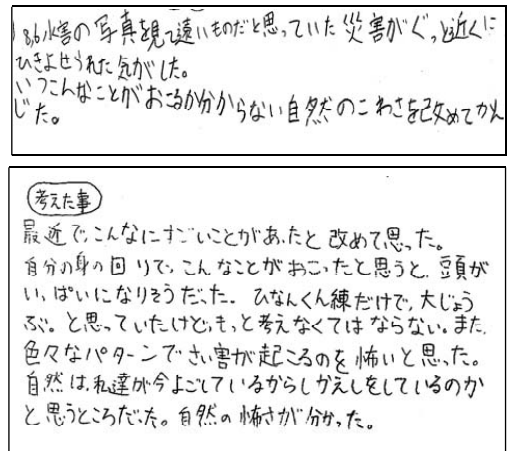 8,6水害の写真を見て遠いものだと思っていた災害がぐっと近くに
ひきよせられた気がした。
いつこんなことがおこるか分からない自然のこわさを改めてかん
じた。
考えた事
最近で、こんなにすごいことがあったと改めて思った。
自分の身の回りで、こんなことがおこったと思うと、頭が
い、ぱいになりそうだった。ひなんくん練だけで、大じょう
ぶ。と思っていたけど、もっと考えなくてはならない。また、
色々なパターンでさい害が起こるのを怖いと思った。
自然は、私達が今よごしているからしかえしをしているのか
と思うところだった。自然の怖さが分かった。